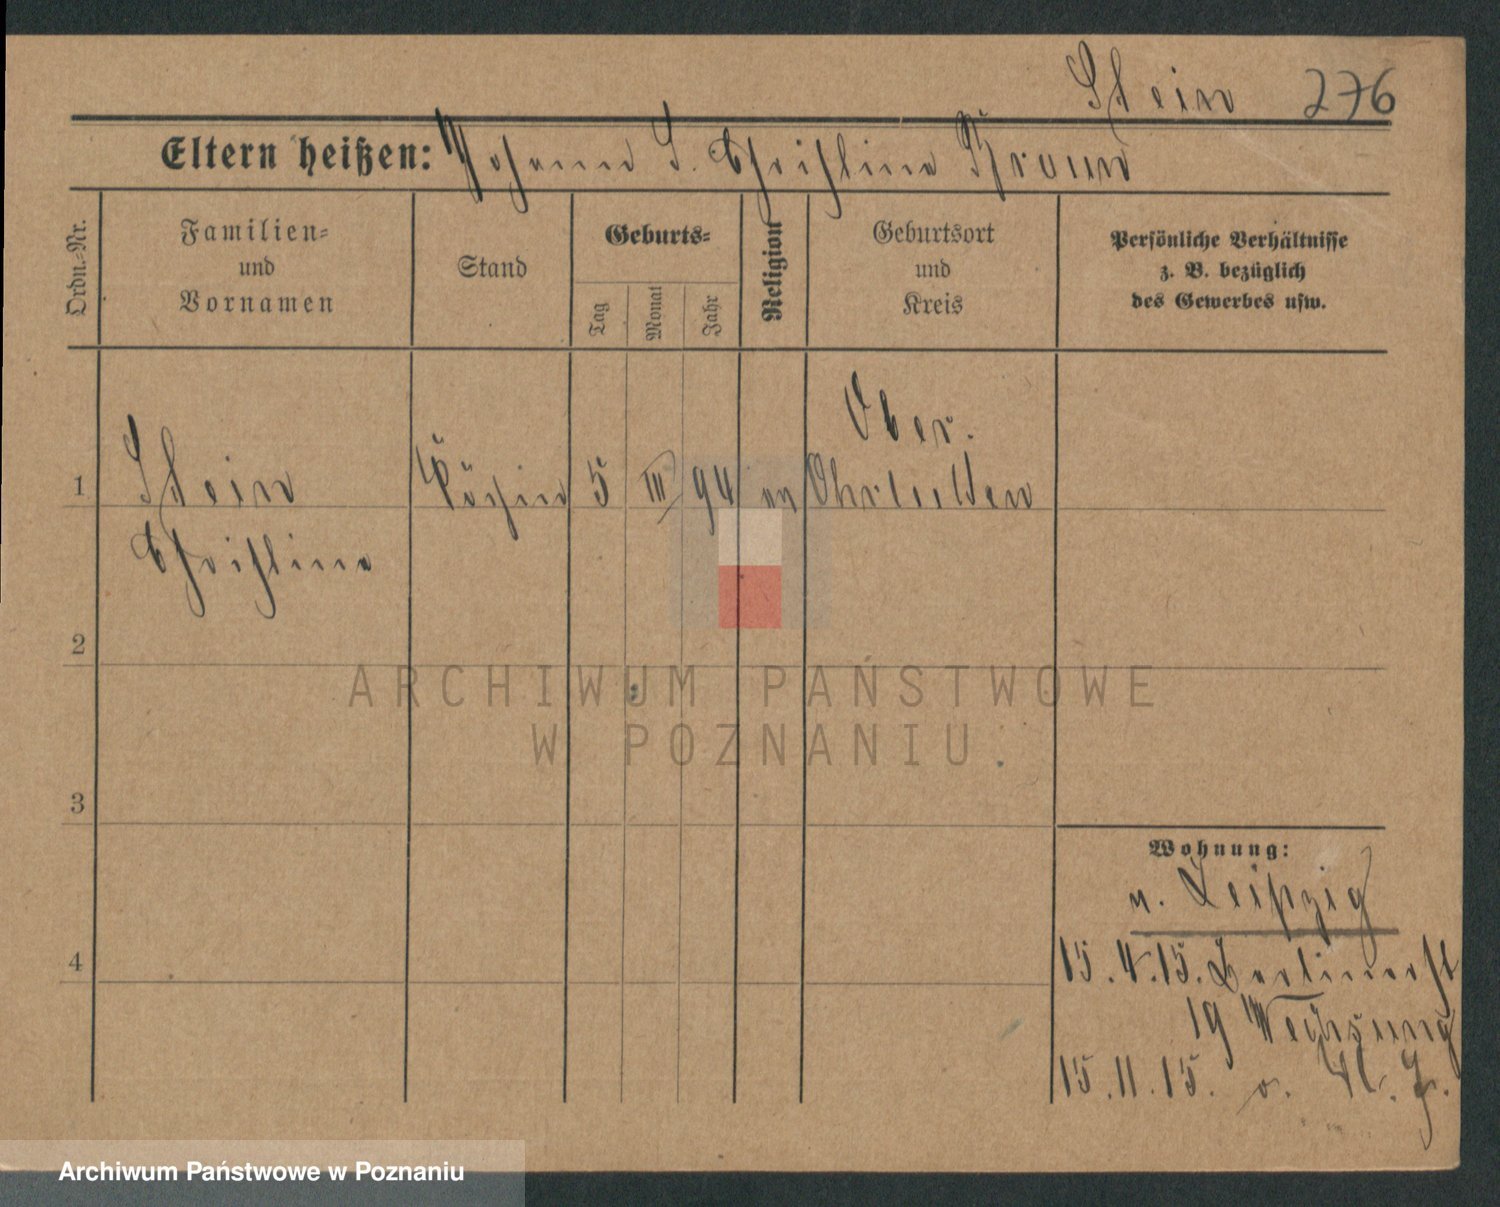 Stein 276
Eltern heißen: Johann S. Christine Braun
Ordn.=Nr.
Familien=
und
Vornamen
Stand
Geburts=
Tag
Monat
Jahr
Religion
Geburtsort
und
Kreis
Persönliche Verhältnisse
z. B. bezüglich
des Gewerbes usw.
Ober.
1 Stein Köchin 5 III 94 ev
Christine
2
3
4
Wohnung:
n. Leipzig
15.4.15. Berlinerst
19
15.11.15. v.
ARCHIWUM PAŃSTWOWE
W POZNANIU
Archiwum Państwowe w Poznaniu